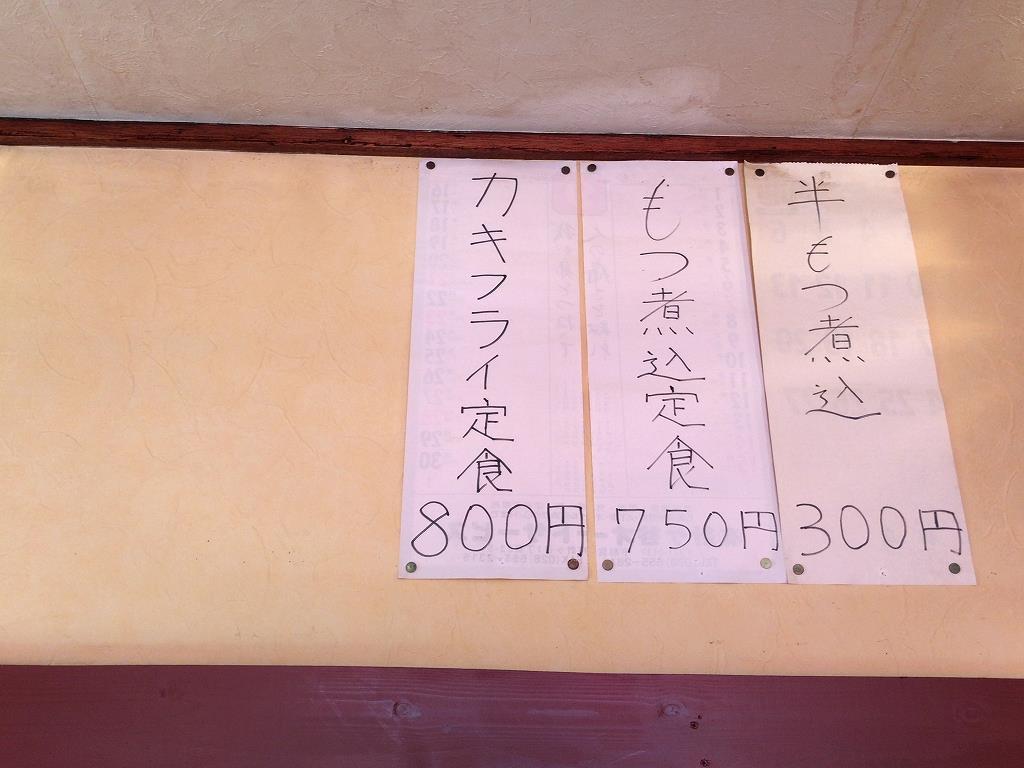 半もつ煮込
300円
もつ煮込定食
750円
カキフライ定食
800円